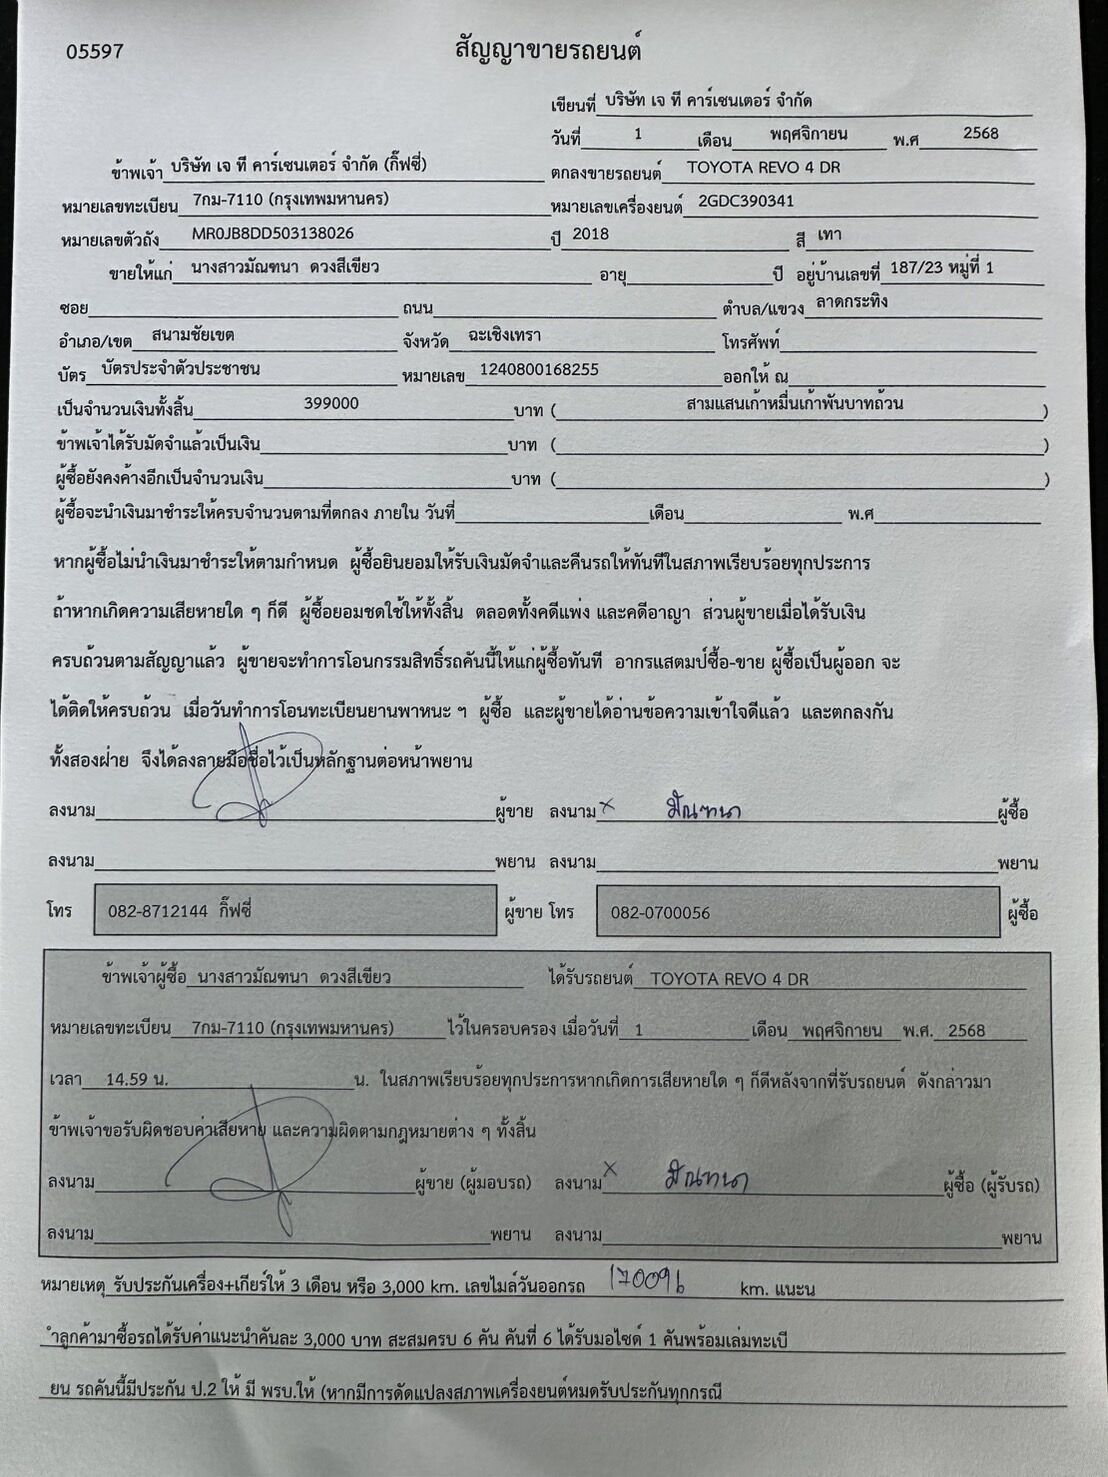 05597
สัญญาขายรถยนต์
เขียนที่ บริษัท เจ ที คาร์เซนเตอร์ จำกัด
วันที่ 1 เดือน พฤศจิกายน พ.ศ 2568
ข้าพเจ้า บริษัท เจ ที คาร์เซนเตอร์ จำกัด (กิ๊ฟซี่) ตกลงขายรถยนต์ TOYOTA REVO 4 DR
หมายเลขทะเบียน 7กม-7110 (กรุงเทพมหานคร) หมายเลขเครื่องยนต์ 2GDC390341
หมายเลขตัวถัง MR0JB8DD503138026 ปี 2018 สี เทา
ขายให้แก่ นางสาวมัณฑนา ดวงสีเขียว อายุ ปี อยู่บ้านเลขที่ 187/23 หมู่ที่ 1
ซอย ถนน ตำบล/แขวง ลาดกระทิง
อำเภอ/เขต สนามชัยเขต จังหวัด ฉะเชิงเทรา โทรศัพท์
บัตร บัตรประจำตัวประชาชน หมายเลข 1240800168255 ออกให้ ณ
เป็นจำนวนเงินทั้งสิ้น 399000 บาท ( สามแสนเก้าหมื่นเก้าพันบาทถ้วน )
ข้าพเจ้าได้รับมัดจำแล้วเป็นเงิน บาท ( )
ผู้ซื้อยังคงค้างอีกเป็นจำนวนเงิน บาท ( )
ผู้ซื้อจะนำเงินมาชำระให้ครบจำนวนตามที่ตกลง ภายใน วันที่ เดือน พ.ศ
หากผู้ซื้อไม่นำเงินมาชำระให้ตามกำหนด ผู้ซื้อยินยอมให้รับเงินมัดจำและคืนรถให้ทันทีในสภาพเรียบร้อยทุกประการ
ถ้าหากเกิดความเสียหายใด ๆ ก็ดี ผู้ซื้อยอมชดใช้ให้ทั้งสิ้น ตลอดทั้งคดีแพ่ง และคดีอาญา ส่วนผู้ขายเมื่อได้รับเงิน
ครบถ้วนตามสัญญาแล้ว ผู้ขายจะทำการโอนกรรมสิทธิ์รถคันนี้ให้แก่ผู้ซื้อทันที อากรแสตมป์ซื้อ-ขาย ผู้ซื้อเป็นผู้ออก จะ
ได้ติดให้ครบถ้วน เมื่อวันทำการโอนทะเบียนยานพาหนะ ฯ ผู้ซื้อ และผู้ขายได้อ่านข้อความเข้าใจดีแล้ว และตกลงกัน
ทั้งสองฝ่าย จึงได้ลงลายมือชื่อไว้เป็นหลักฐานต่อหน้าพยาน
ลงนาม ผู้ขาย ลงนาม x มัณฑนา ผู้ซื้อ
ลงนาม พยาน ลงนาม พยาน
โทร 082-8712144 กิ๊ฟซี่ ผู้ขาย โทร 082-0700056 ผู้ซื้อ
ข้าพเจ้าผู้ซื้อ นางสาวมัณฑนา ดวงสีเขียว ได้รับรถยนต์ TOYOTA REVO 4 DR
หมายเลขทะเบียน 7กม-7110 (กรุงเทพมหานคร) ไว้ในครอบครอง เมื่อวันที่ 1 เดือน พฤศจิกายน พ.ศ. 2568
เวลา 14.59 น. น. ในสภาพเรียบร้อยทุกประการหากเกิดการเสียหายใด ๆ ก็ดีหลังจากที่รับรถยนต์ ดังกล่าวมา
ข้าพเจ้าขอรับผิดชอบค่าเสียหาย และความผิดตามกฎหมายต่าง ๆ ทั้งสิ้น
ลงนาม ผู้ขาย (ผู้มอบรถ) ลงนาม x มัณฑนา ผู้ซื้อ (ผู้รับรถ)
ลงนาม พยาน ลงนาม พยาน
หมายเหตุ รับประกันเครื่อง+เกียร์ให้ 3 เดือน หรือ 3,000 km. เลขไมล์วันออกรถ 170096 km. แนะน
ำลูกค้ามาซื้อรถได้รับค่าแนะนำคันละ 3,000 บาท สะสมครบ 6 คัน คันที่ 6 ได้รับมอไซด์ 1 คันพร้อมเล่มทะเบี
ยน รถคันนี้มีประกัน ป.2 ให้ มี พรบ.ให้ (หากมีการดัดแปลงสภาพเครื่องยนต์หมดรับประกันทุกกรณี